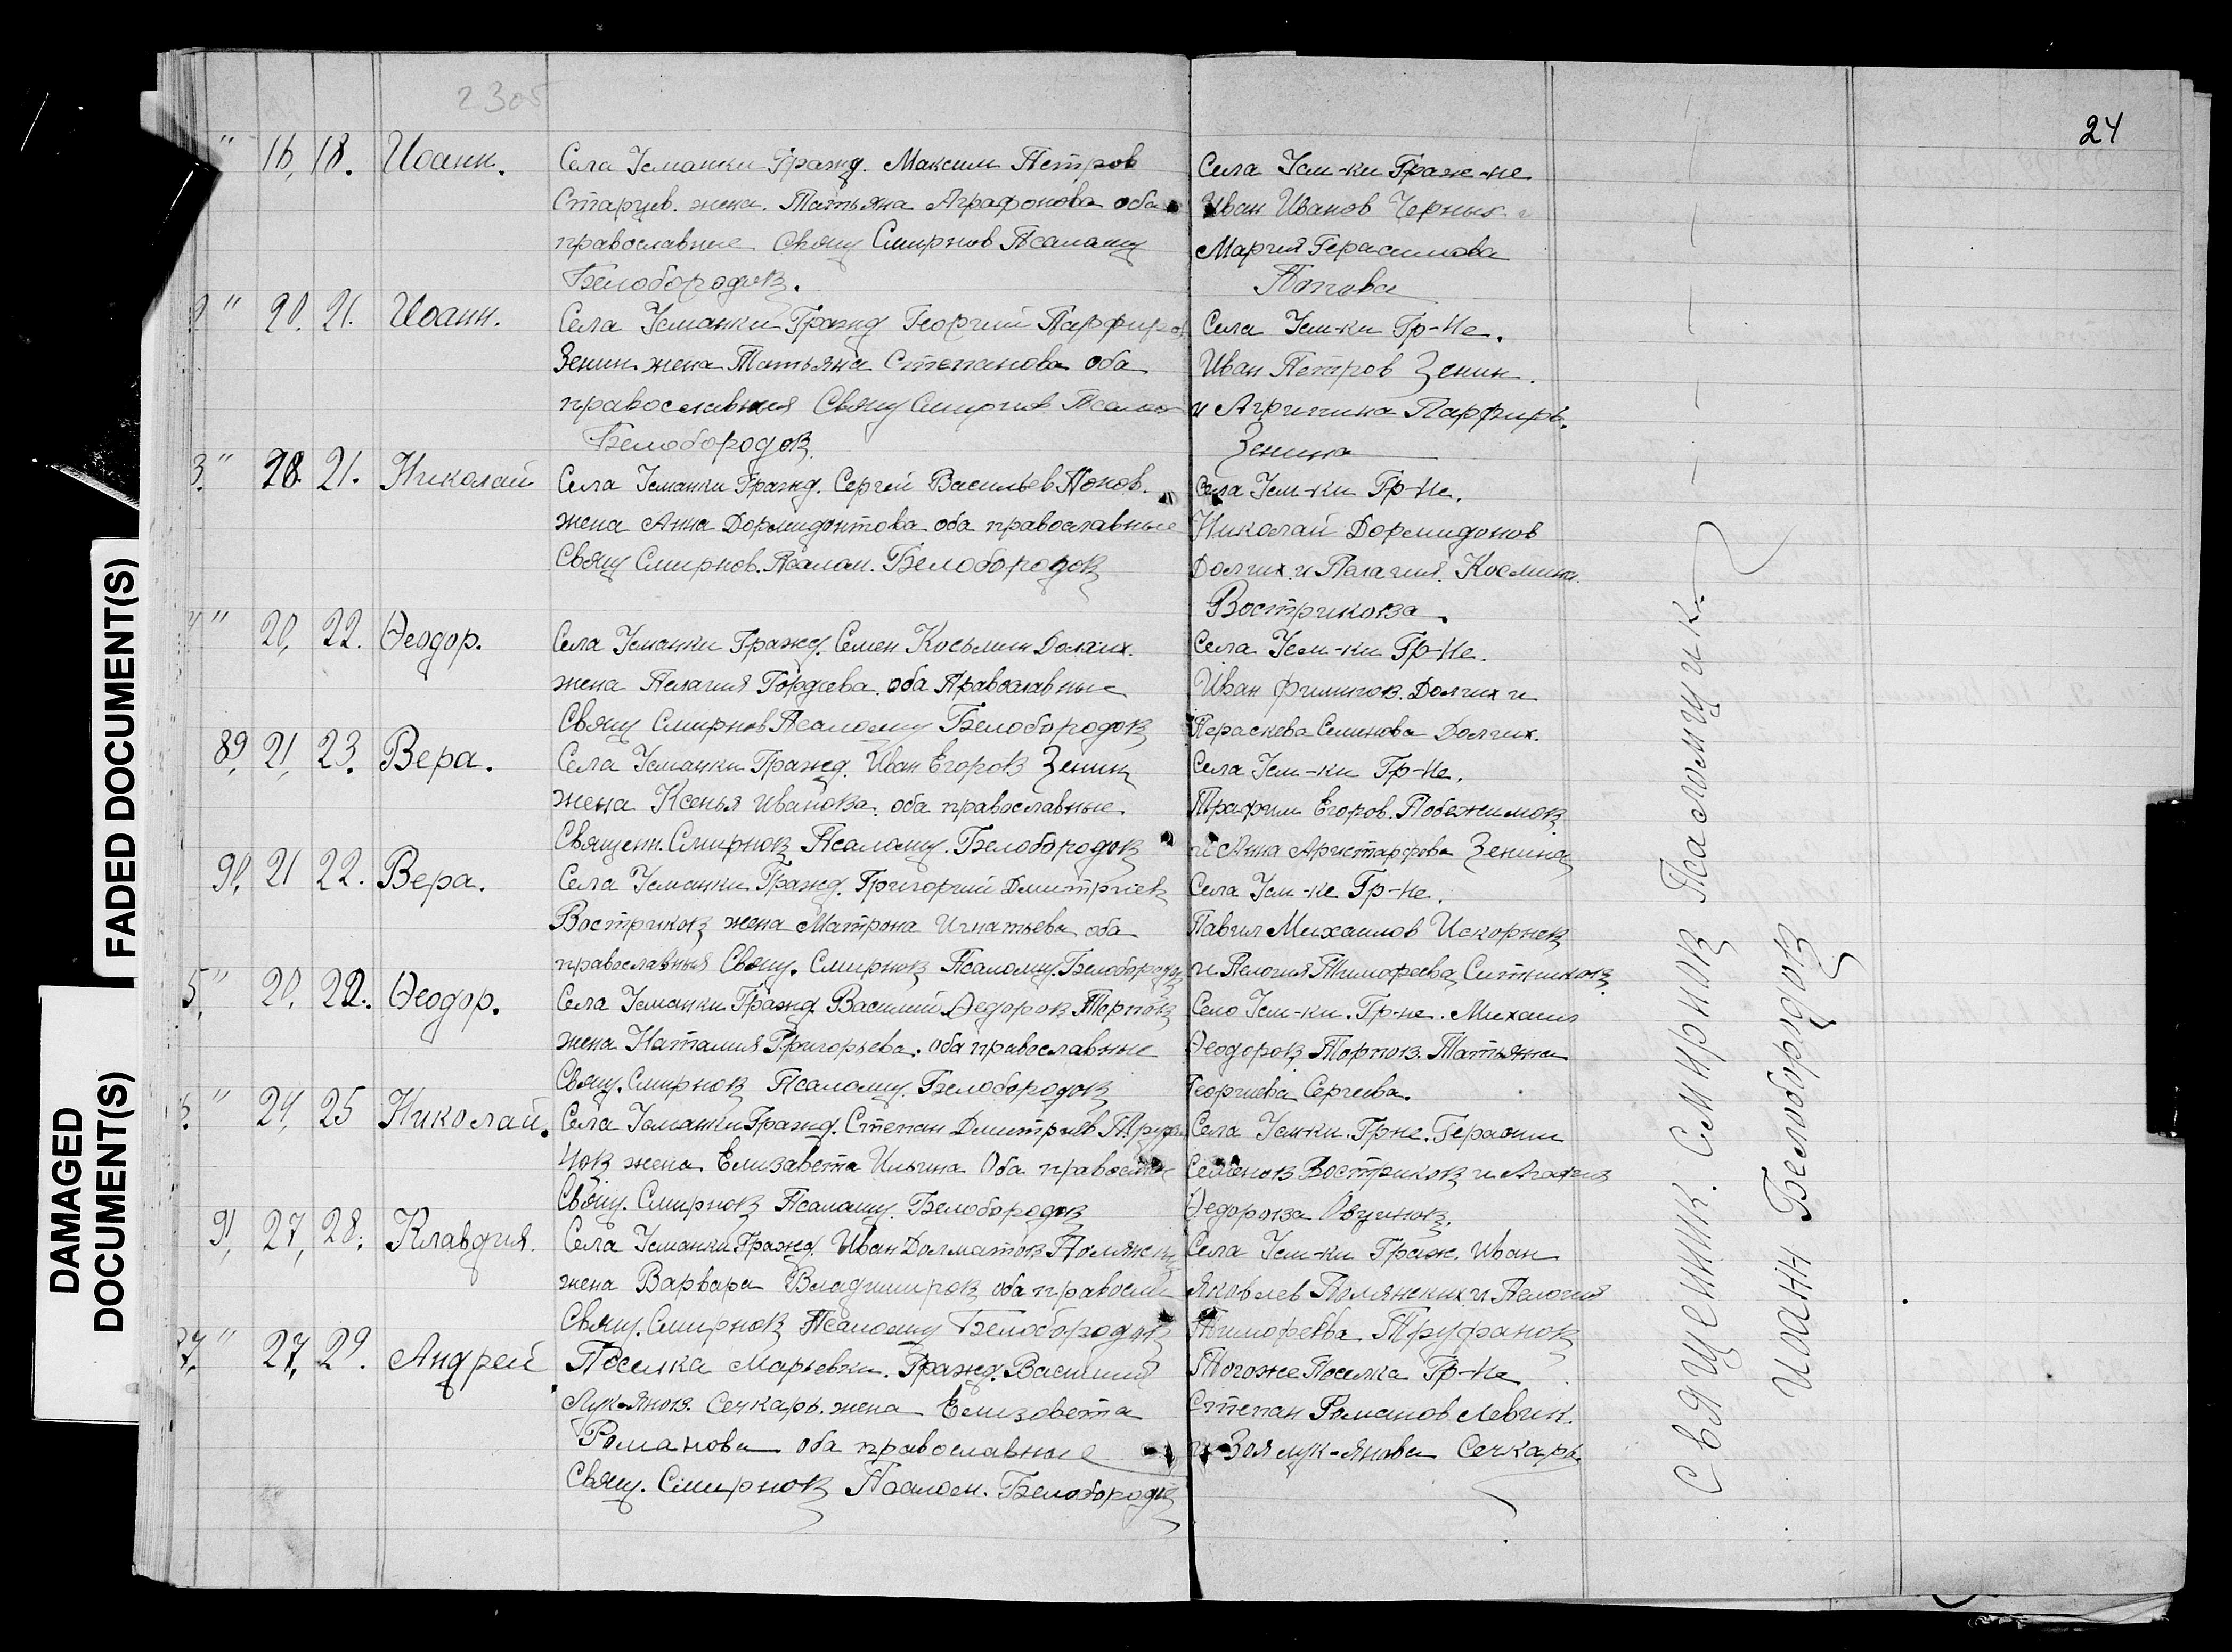 2305
24
" 16, 18. Иоанн. Села Усманки Гражд. Максим Петров
Старцев. жена. Татьяна Аграфонова оба
православные Свящ Смирнов Псаломщ
Белобородов.
Села Усм-ки Граж-не
Иван Иванов Черных и
Мария Герасимова
Попова
" 20. 21. Иоанн. Села Усманки Гражд Георгий Парфиров
Зенин. жена Татьяна Степанова оба
православныя Свящ Смирнов Псалом
Белобородов.
Села Усм-ки Гр-не.
Иван Петров Зенин.
и Агрипина Парфирь.
Зенина
3." 28. 21. Николай Села Усманки Гражд. Сергей Васильев Попов.
жена Анна Дормидонтова оба православные
Свящ Смирнов. Псалом. Белобородов
Села Усм-ки Гр-не.
Николай Дормидонов
Долгих. и Палагия. Космин.
Вострикова.
" 20, 22. Ѳеодор. Села Усманки Гражд. Семен Косьмин Долгих.
жена Пелагия Гордеева. оба Православные
Свящ Смирнов Псаломщ Белобородов
Села Усм-ки Гр-не.
Иван Филипов. Долгих и
Параскева Семинова Долгих.
89, 21, 23. Вера. Села Усманки Гражд. Иван Егоров Зенин
жена Ксенья Иванова. оба православные.
Священ. Смирнов Псаломщ. Белобородов
Села Усм-ки Гр-не.
Трафим Егоров. Побежимов
и Анна Аристарфова Зенина
90, 21 22. Вера. Села Усманки Гражд. Григорий Дмитриев
Востриков жена Матрона Игнатьева оба
православныя Свящ. Смирнов Псаломщ. Белобородов
Села Усм-ке Гр-не.
Павил Михаилов Искорнев
и Пелогия Тимофеева Ситников
5," 20, 22. Ѳеодор. Села Усманки Гражд Василий Ѳедоров Торпов
жена Наталия Григорьева. оба православные
Свящ. Смирнов Псаломщ. Белобородов
Село Усм-ки. Гр-не. Михаил
Ѳеодоров Торпов. Татьяна
Георгиева Сергеева.
" 24, 25 Николай. Села Усманки Гражд. Степан Дмитрив Труфа
нов жена Елизавета Ильина Оба православ
Свящ. Смирнов Псаломщ. Белобородов
Села Усмки. Грне. Герасим
Семенов Востриков и Агафия
Ѳедорова Овчинов.
91, 27, 28. Клавдия. Села Усманки Гражд. Иван Долматов Полянски
жена Варвара Владимиров оба правосла
Свящ. Смирнов Псаломщ Белобородов
Села Усм-ки Граж. Иван
Яковлев Полянских и Пелогия
Тимофеева Труфанов
7," 27, 29. Андрей Поселка Марьевки. Гражд. Василий
Лук-янов. Сечкарь. жена Елизовета
Романова оба православные
Свящ. Смирнов Псалом. Белобородов
Тогоже Поселка Гр-не
Степан Романов Левик.
и Зоя лук-янова Сечкарь.
Священик. Смирнов Псаломщик.
Иоанн Белобородов
FADED DOCUMENT(S)
DAMAGED
DOCUMENT(S)